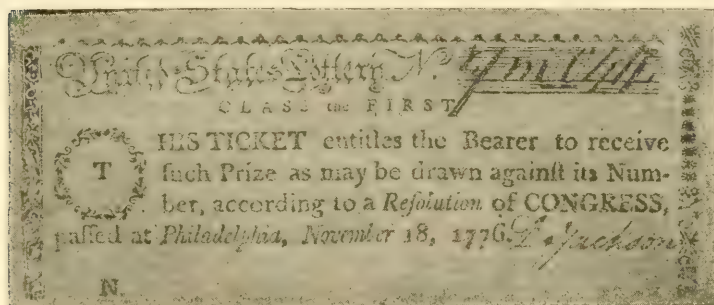 United States Lottery N.
CLASS the FIRST
THIS TICKET entitles the Bearer to receive
ſuch Prize as may be drawn againſt its Num-
ber, according to a Reſolution of CONGRESS,
paſſed at Philadelphia, November 18, 1776. D. Jackson
N.